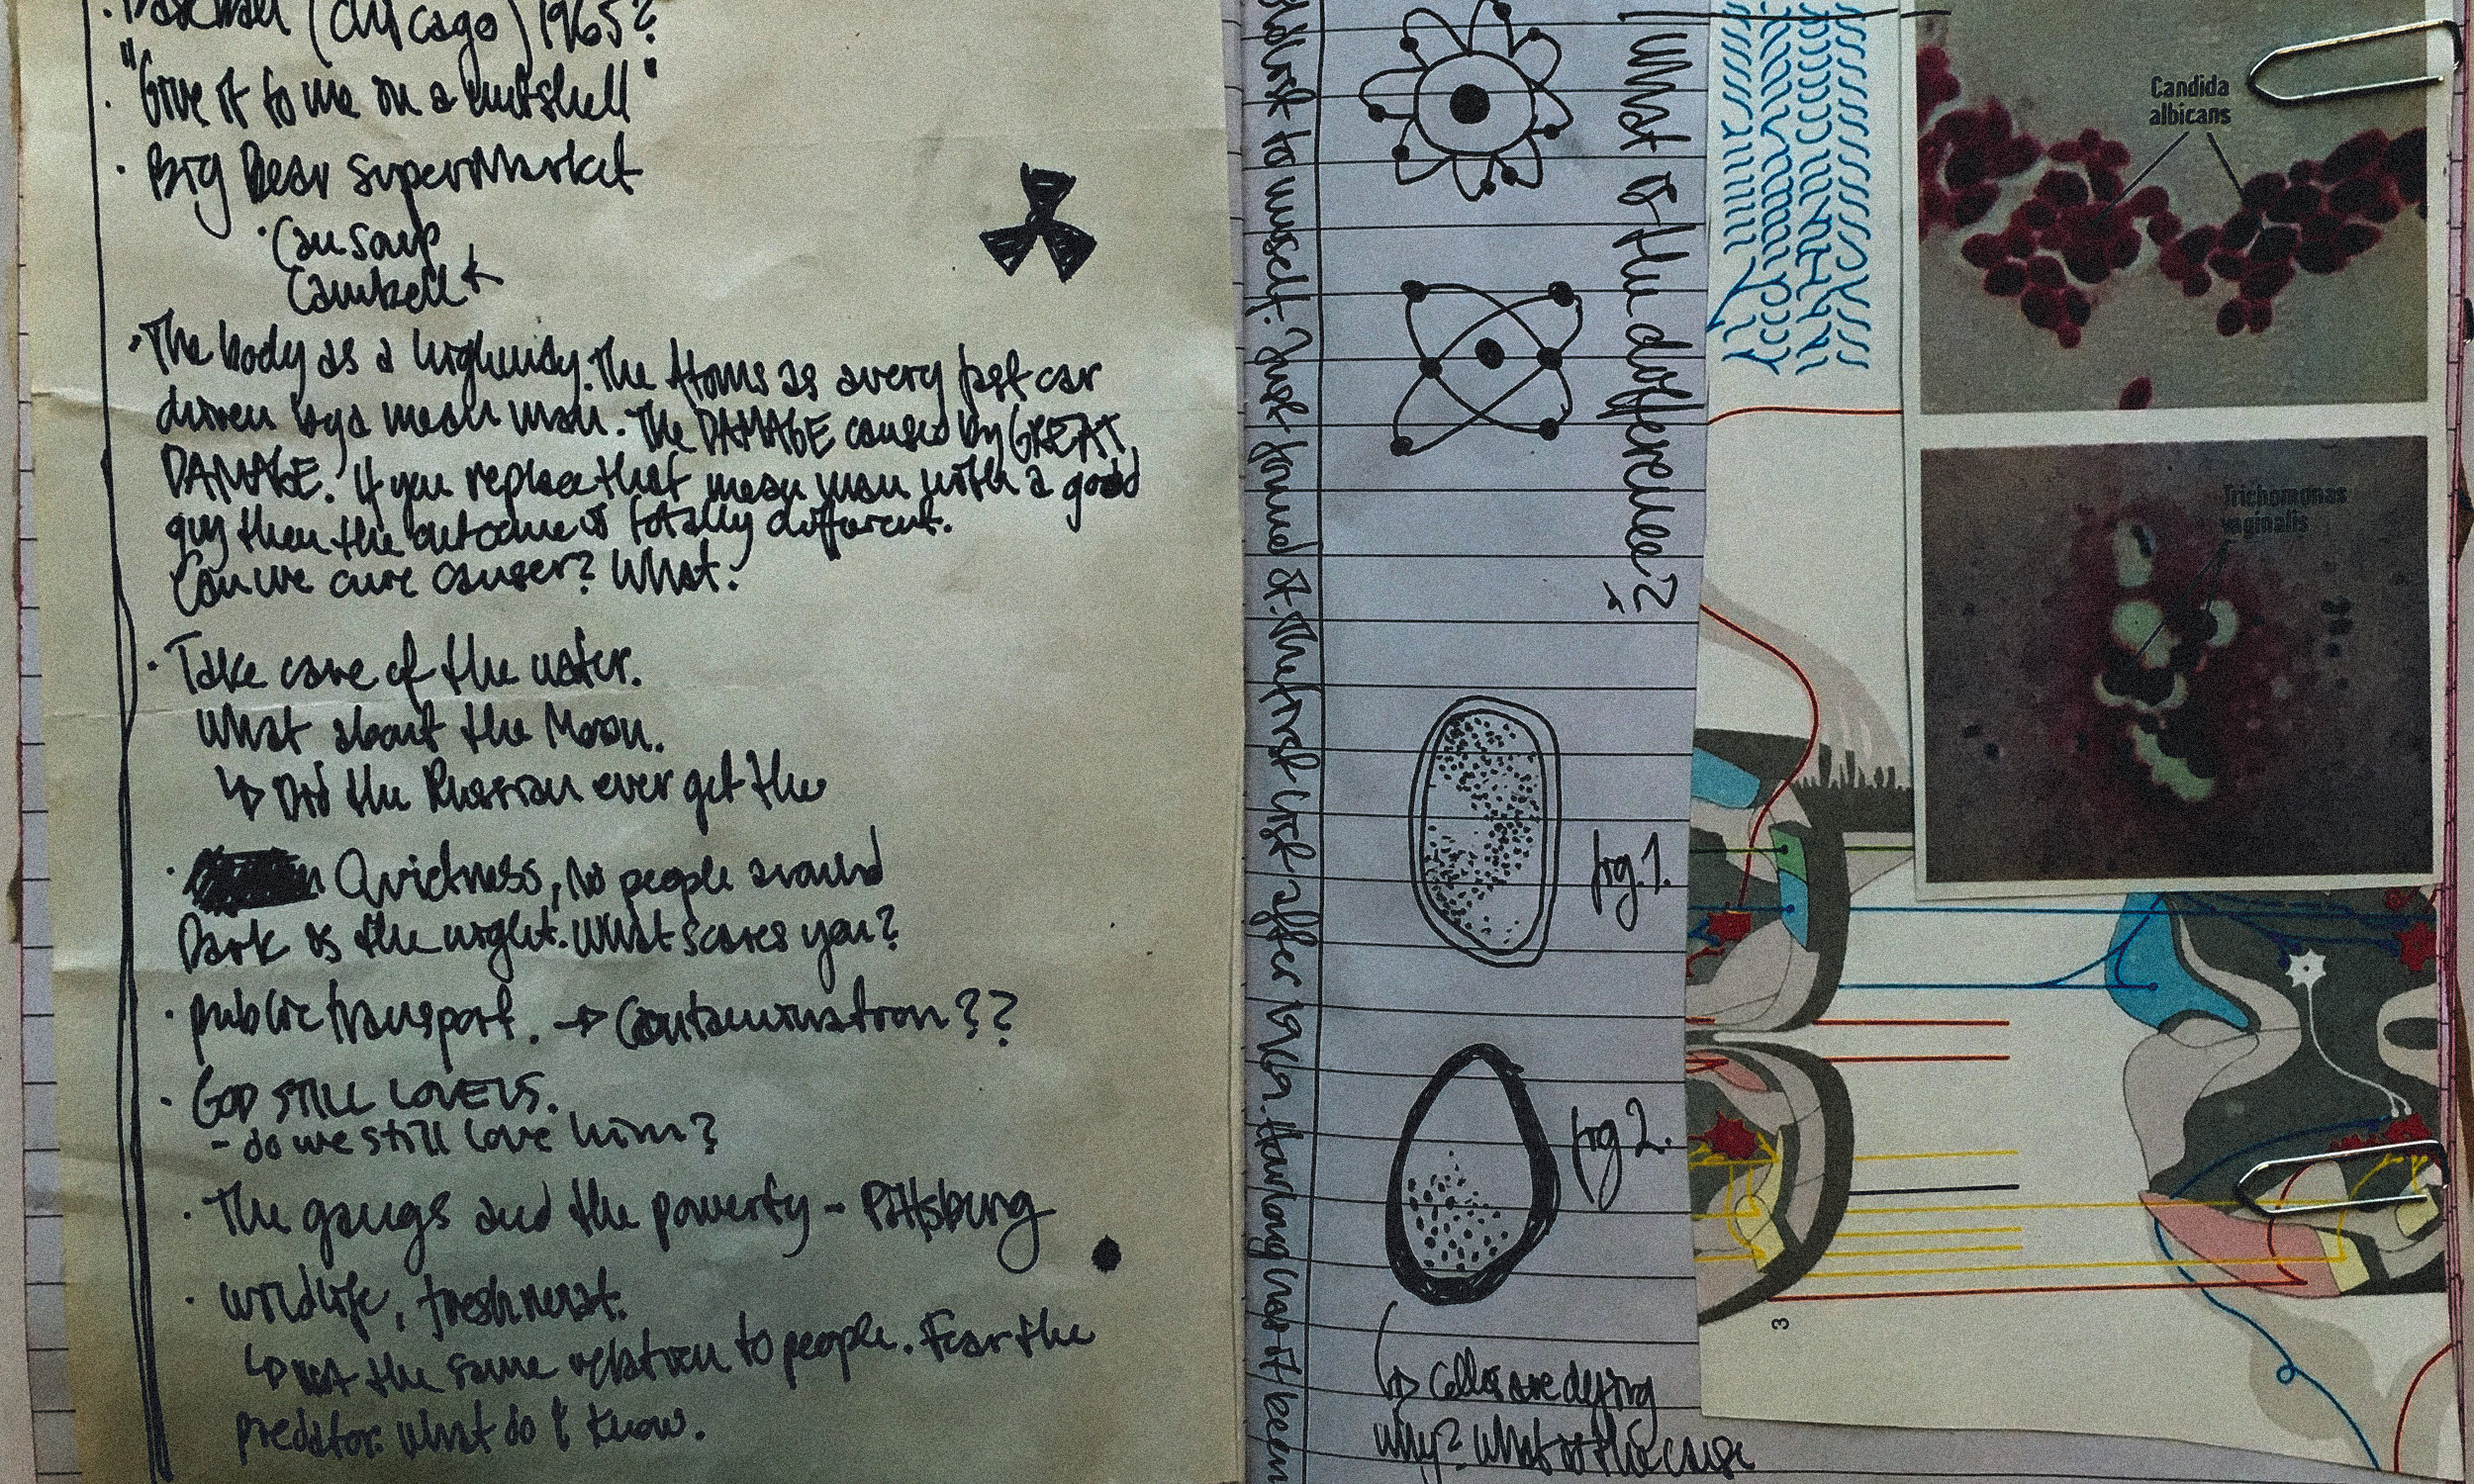 (Chicago) 1965?
· "Give it to me on a nutshell"
· Big Bear SuperMarket
· Can Soup
Cambell
· The body as a highway. The Atoms as a very fast car
driven by a mean man. The DAMAGE caused by GREAT
DAMAGE. If you replace that mean man with a good
guy then the outcome is totally different.
Can we cure cancer? What?
· Take care of the water.
What about the Moon.
↳ Did the Russian ever get the
· Quickness, No people around
Dark is the night. What scares you?
· public transport. → Contamination??
· GOD STILL LOVES.
- do we still love him?
· The gangs and the poverty - Pittsburg
· Wildlife, fresh meat.
↳ not the same relation to people. Fear the
predator. What do I know.
to myself. Just found it. The first list after 1969. How long has it been
What is the difference?
fig.1.
fig 2.
↳ Cells are dying
why? What is the cause
Candida
albicans
Trichomonas
vaginalis
3